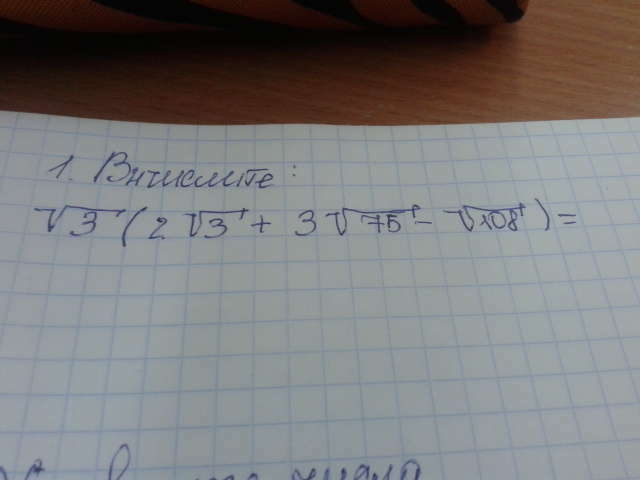 1. Вычислите:
√3 (2√3 + 3√75 - √108) =